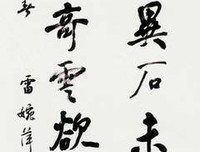 異石未
奇雲欲
雷婉萍